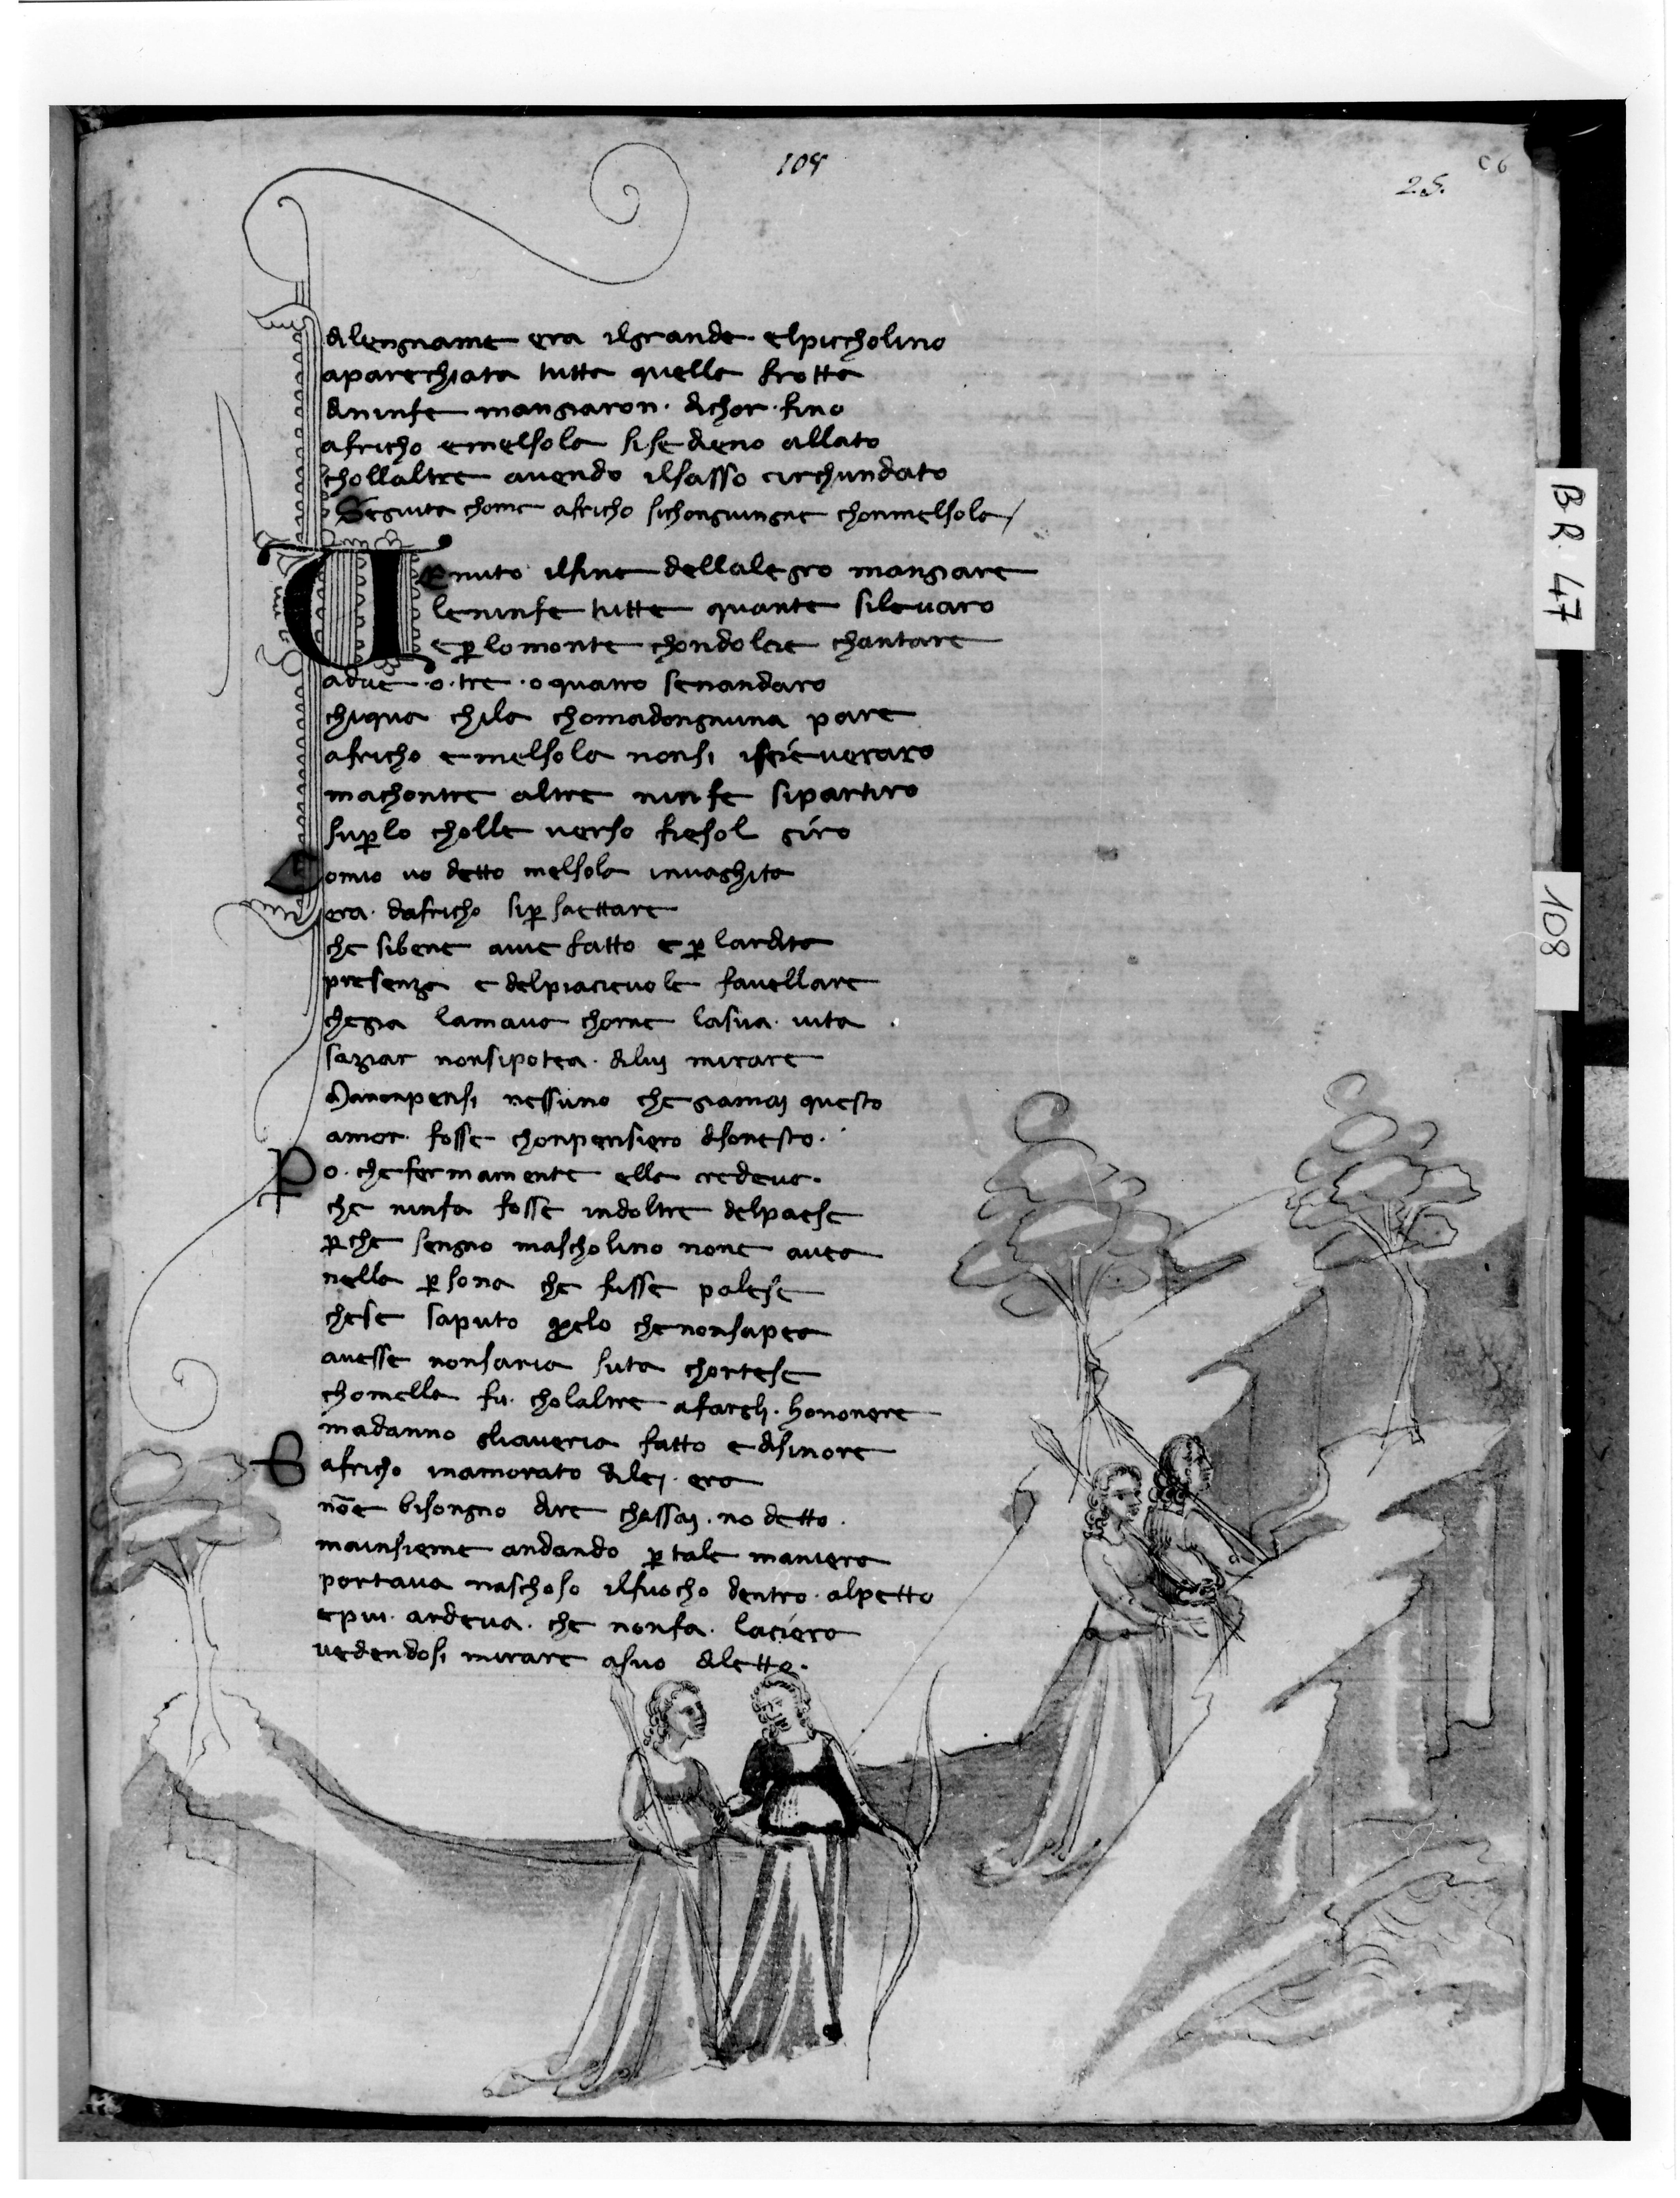 108
2.5.
C6
dilengname era ilgrande elpiccholino
aparechiata tutta quella frotta
dininfe mangiaron. dichor. fino
africho emelsola sisedieno allato
chollaltre avendo ilsasso circhundato
Seguita chome africho sichongiungne chonmelsola
Venuto ilfine dellalegro mangiare
leninfe tutte quante silevaro
e p̱lomonte chondolcie chantare
adue .o. tre .o quatro senandaro
chiqua chila chomadongnuna pare
africho emelsola nonsi iscieveraro
machontre altre ninfe sipartiro
sup̱lo cholle verso fiesol giro
omio vo detto melsola invaghita
era. dafricho sip̱ saettare
che sibene avie fatto e p̱ lardita
presenza e delpiacievole favellare
chegia lamava chome lasua. vita
saziar nonsipotea. dilui mirare
Manonpensi nessuno chegiamai questo
amor. fosse chonpensiero disonesto.
Po. chefermamente ella credeva.
che ninfa fosse indoltre delpaese
p̱che sengno mascholino none avea
nella p̱sona che fusse palese
chese saputo quelo chenonsapea
avesse nonsaria suta chortese
chomella fu. cholaltre afargli. honorere
madanno gliaveria fatto e disinore
E africho inamorato dilei. era
nōe bisongno dire chassai. no detto.
mainsieme andando p̱ tale maniera
portava naschoso ilfuocho dentro. alpetto
epiu. ardeva. che nonfa. laciera
vedendosi mirare asuo diletto.
BR 47
108